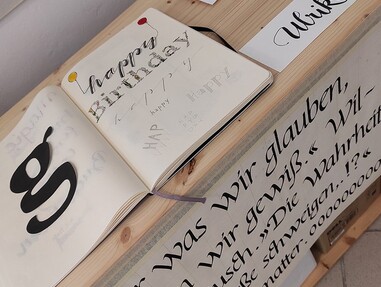 g
happy
Birthday
happy
HAP
HAPPY
Ulrik
was wir glauben,
wir gewiß.« Wil-
usch. »Die Wahrheit
ße schweigen. !?«
matter.